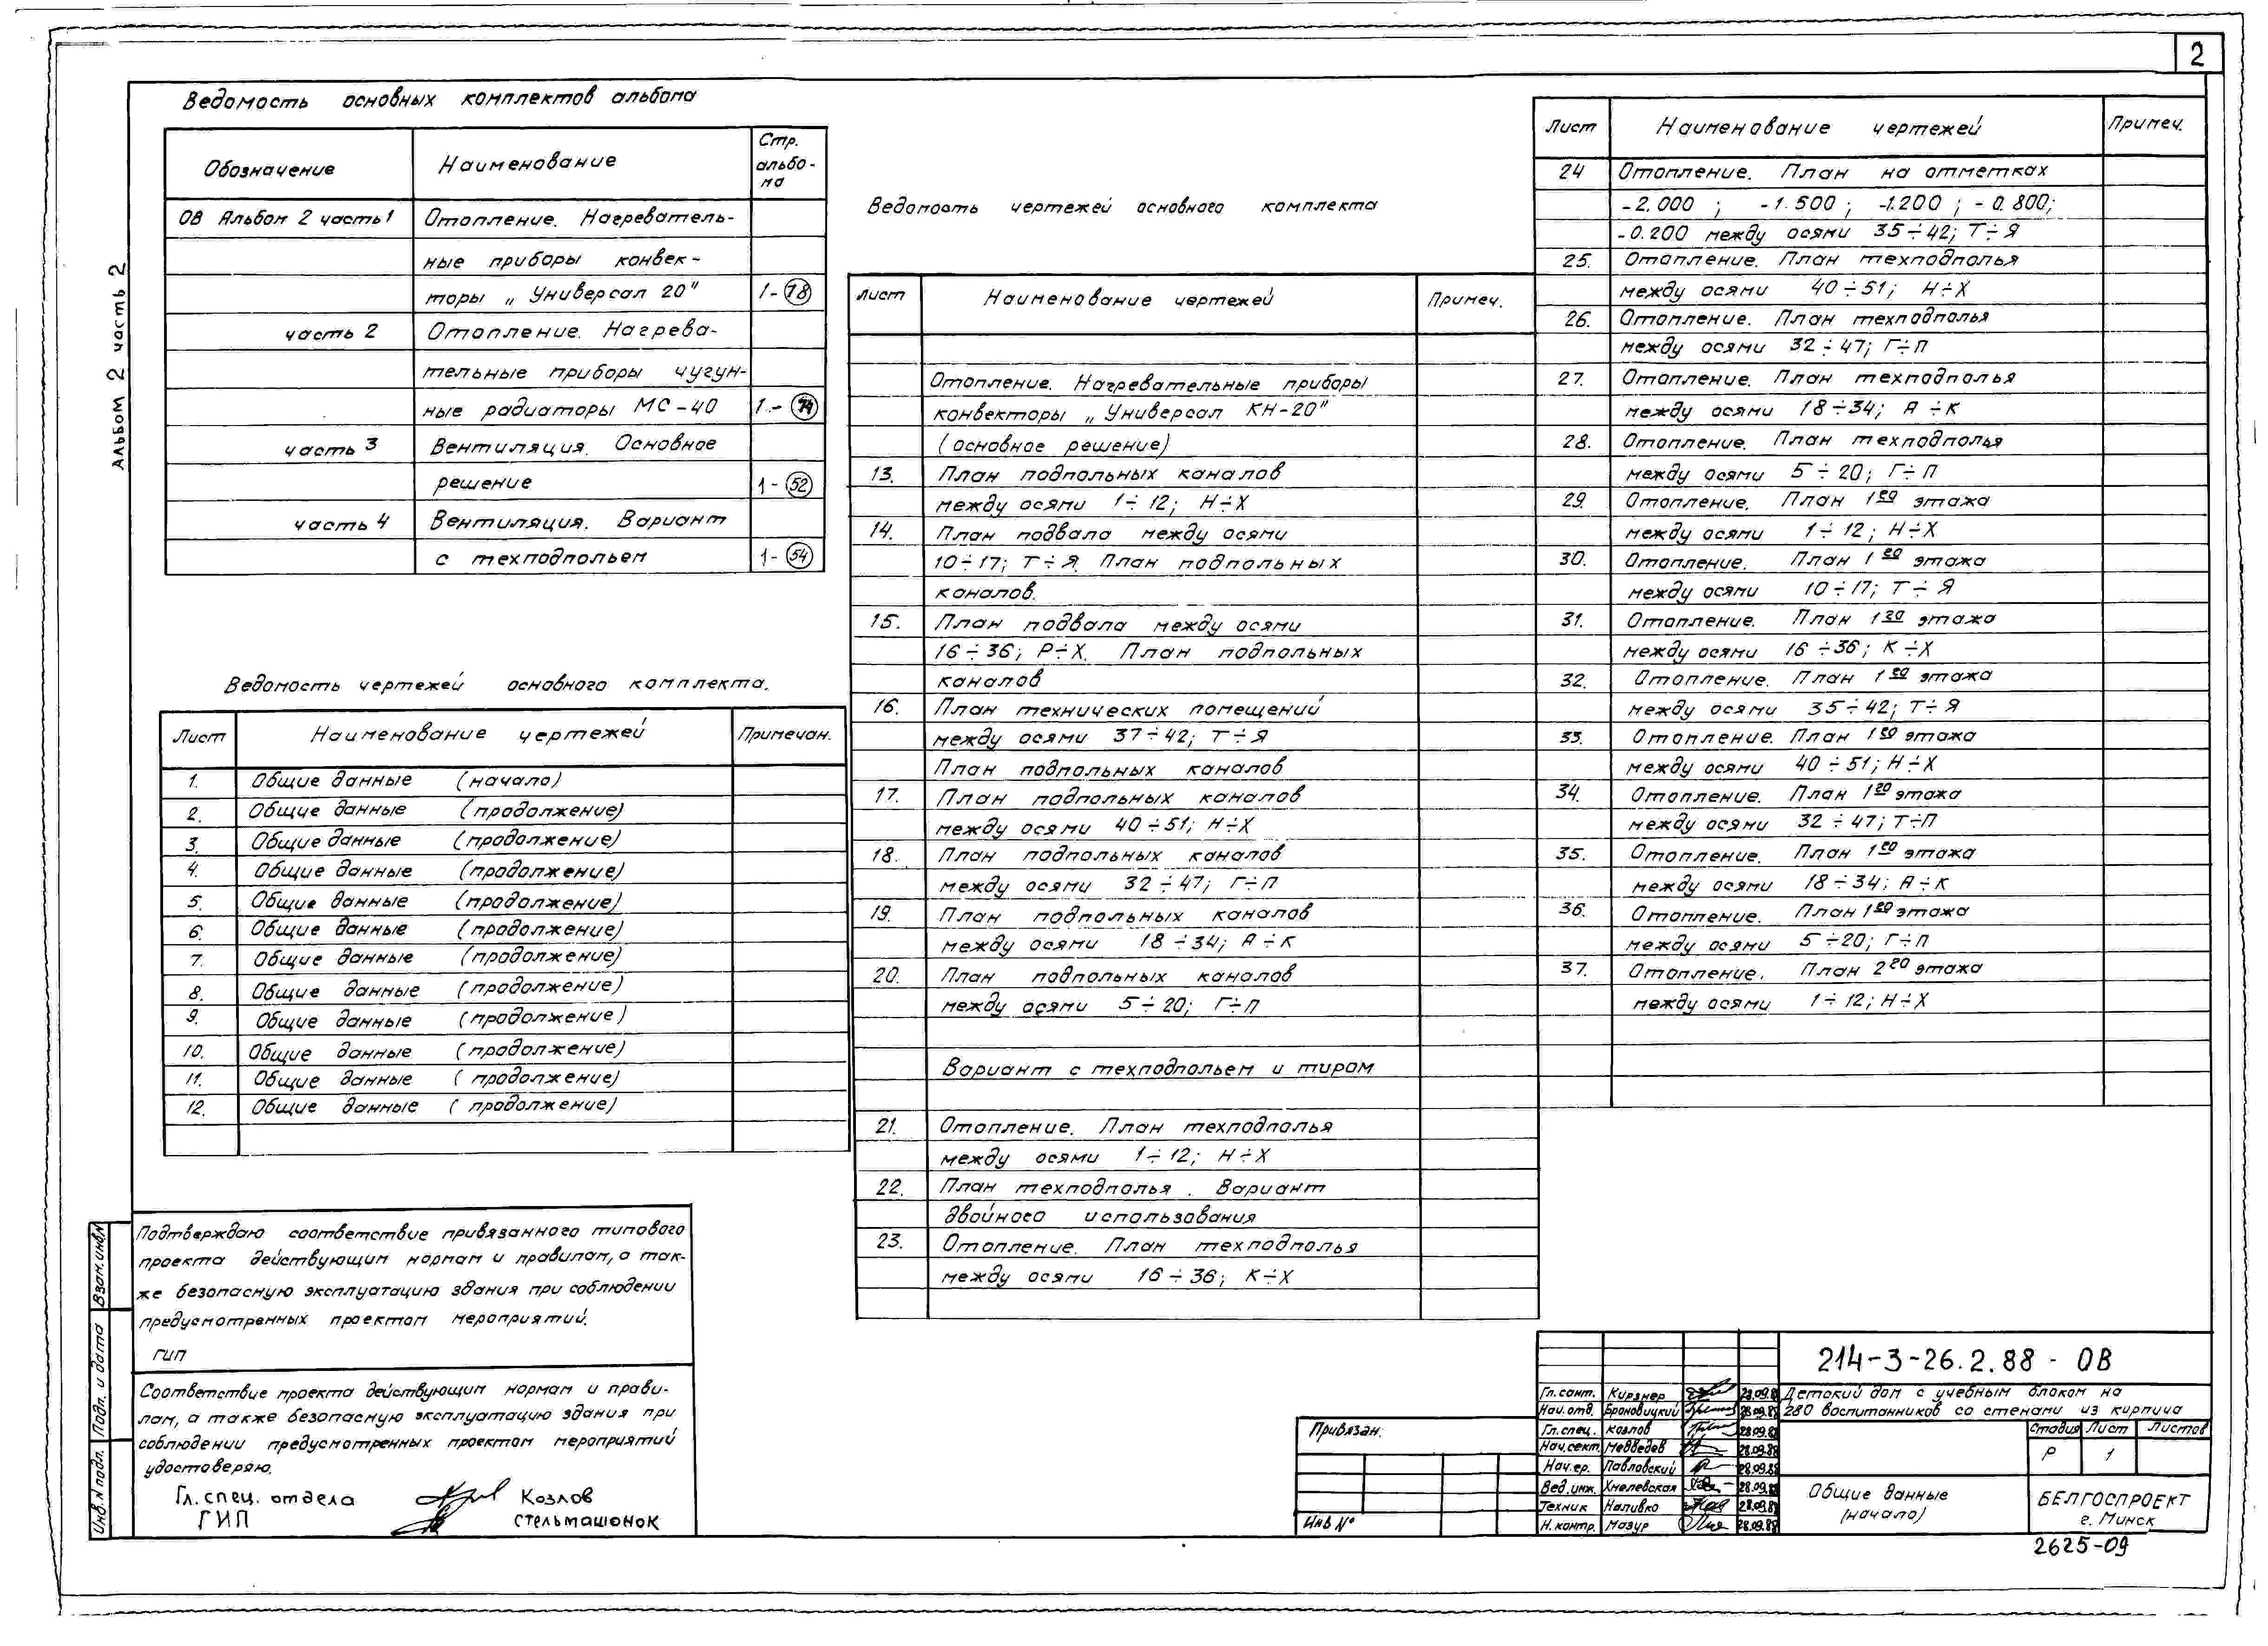 2
Альбом 2 часть 2
Ведомость основных комплектов альбома
Обозначение Наименование Стр. альбо-
ма
ОВ Альбом 2 часть 1 Отопление. Нагреватель-
ные приборы конвек-
торы „Универсал 20" 1-78
часть 2 Отопление. Нагрева-
тельные приборы чугун-
ные радиаторы МС-40 1-74
часть 3 Вентиляция. Основное
решение 1-52
часть 4 Вентиляция. Вариант
с техподпольем 1-54
Ведомость чертежей основного комплекта.
Лист Наименование чертежей Примечан.
1. Общие данные (начало)
2. Общие данные (продолжение)
3. Общие данные (продолжение)
4. Общие данные (продолжение)
5. Общие данные (продолжение)
6. Общие данные (продолжение)
7. Общие данные (продолжение)
8. Общие данные (продолжение)
9. Общие данные (продолжение)
10. Общие данные (продолжение)
11. Общие данные (продолжение)
12. Общие данные (продолжение)
Подтверждаю соответствие привязанного типового
проекта действующим нормам и правилам, а так-
же безопасную эксплуатацию здания при соблюдении
предусмотренных проектом мероприятий.
ГИП
Соответствие проекта действующим нормам и прави-
лам, а также безопасную эксплуатацию здания при
соблюдении предусмотренных проектом мероприятий
удостоверяю.
Гл. спец. отдела Козлов
ГИП Стельмашонок
Взам. инв.N
Подп. и дата
Инв. N подл.
Ведомость чертежей основного комплекта
Лист Наименование чертежей Примеч.
Отопление. Нагревательные приборы
конвекторы „Универсал КН-20"
(основное решение)
13. План подпольных каналов
между осями 1÷12; Н÷Х
14. План подвала между осями
10÷17; Т÷Я. План подпольных
каналов.
15. План подвала между осями
16÷36; Р÷Х. План подпольных
каналов
16. План технических помещений
между осями 37÷42; Т÷Я
План подпольных каналов
17. План подпольных каналов
между осями 40÷51; Н÷Х
18. План подпольных каналов
между осями 32÷47; Г÷П
19. План подпольных каналов
между осями 18÷34; А÷К
20. План подпольных каналов
между осями 5÷20; Г÷П
Вариант с техподпольем и тиром
21. Отопление. План техподполья
между осями 1÷12; Н÷Х
22. План техподполья. Вариант
двойного использования
23. Отопление. План техподполья
между осями 16÷36; К÷Х
Лист Наименование чертежей Примеч.
24 Отопление. План на отметках
-2.000; -1.500; -1.200; -0.800;
-0.200 между осями 35÷42; Т÷Я
25. Отопление. План техподполья
между осями 40÷51; Н÷Х
26. Отопление. План техподполья
между осями 32÷47; Г÷П
27. Отопление. План техподполья
между осями 18÷34; А÷К
28. Отопление. План техподполья
между осями 5÷20; Г÷П
29. Отопление. План 1го этажа
между осями 1÷12; Н÷Х
30. Отопление. План 1го этажа
между осями 10÷17; Т÷Я
31. Отопление. План 1го этажа
между осями 16÷36; К÷Х
32. Отопление. План 1го этажа
между осями 35÷42; Т÷Я
33. Отопление. План 1го этажа
между осями 40÷51; Н÷Х
34. Отопление. План 1го этажа
между осями 32÷47; Т÷П
35. Отопление. План 1го этажа
между осями 18÷34; А÷К
36. Отопление. План 1го этажа
между осями 5÷20; Г÷П
37. Отопление. План 2го этажа
между осями 1÷12; Н÷Х
Привязан:
Инв №
214-3-26.2.88 - ОВ
Детский дом с учебным блоком на
280 воспитанников со стенами из кирпича
Гл. сант. Кирзнер 28.09.88
Нач. отд. Броновицкий 28.09.88
Гл. спец. Козлов 28.09.88
Нач. сект. Медведев 28.09.88
Нач. гр. Павловский 28.09.88
Вед. инж. Хмелевская 28.09.88
Техник Наливко 28.09.88
Н. контр. Мазур 28.09.88
Стадия Лист Листов
Р 1
Общие данные
(начало)
БЕЛГОСПРОЕКТ
г. Минск
2625-09